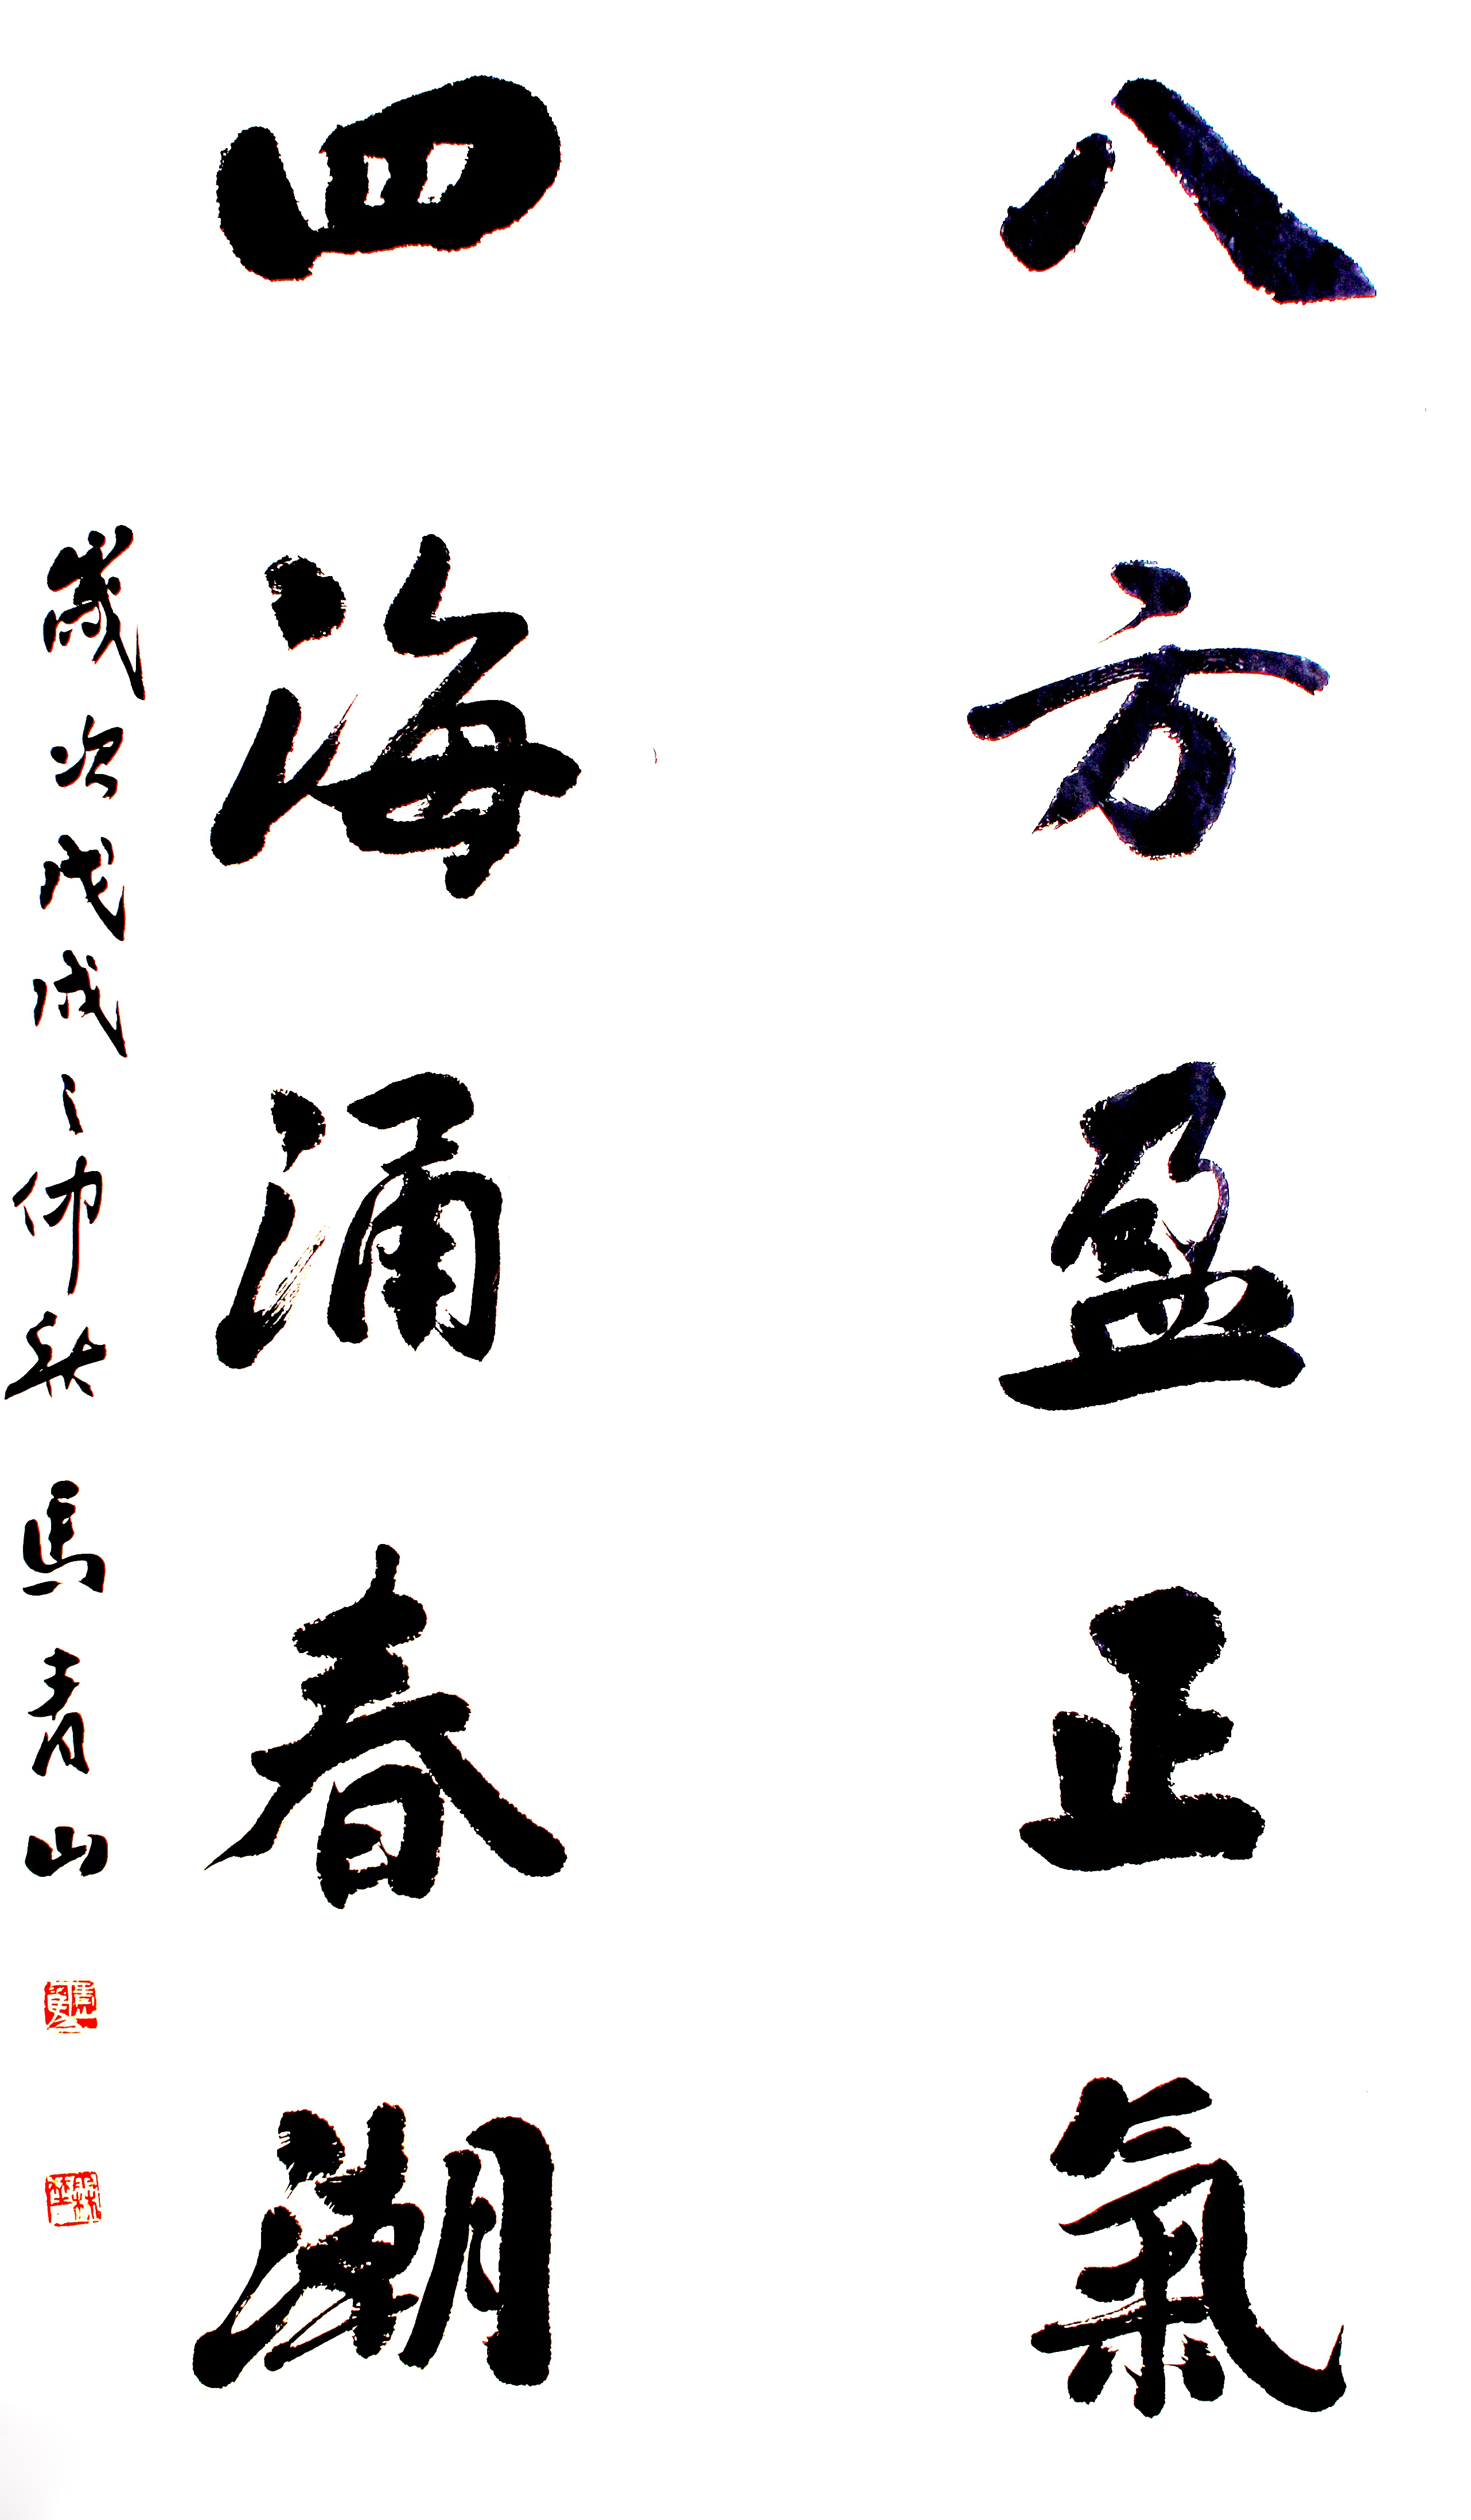 八方盈正氣
四海涌春潮
歲次戊戌之仲秋 馬青山